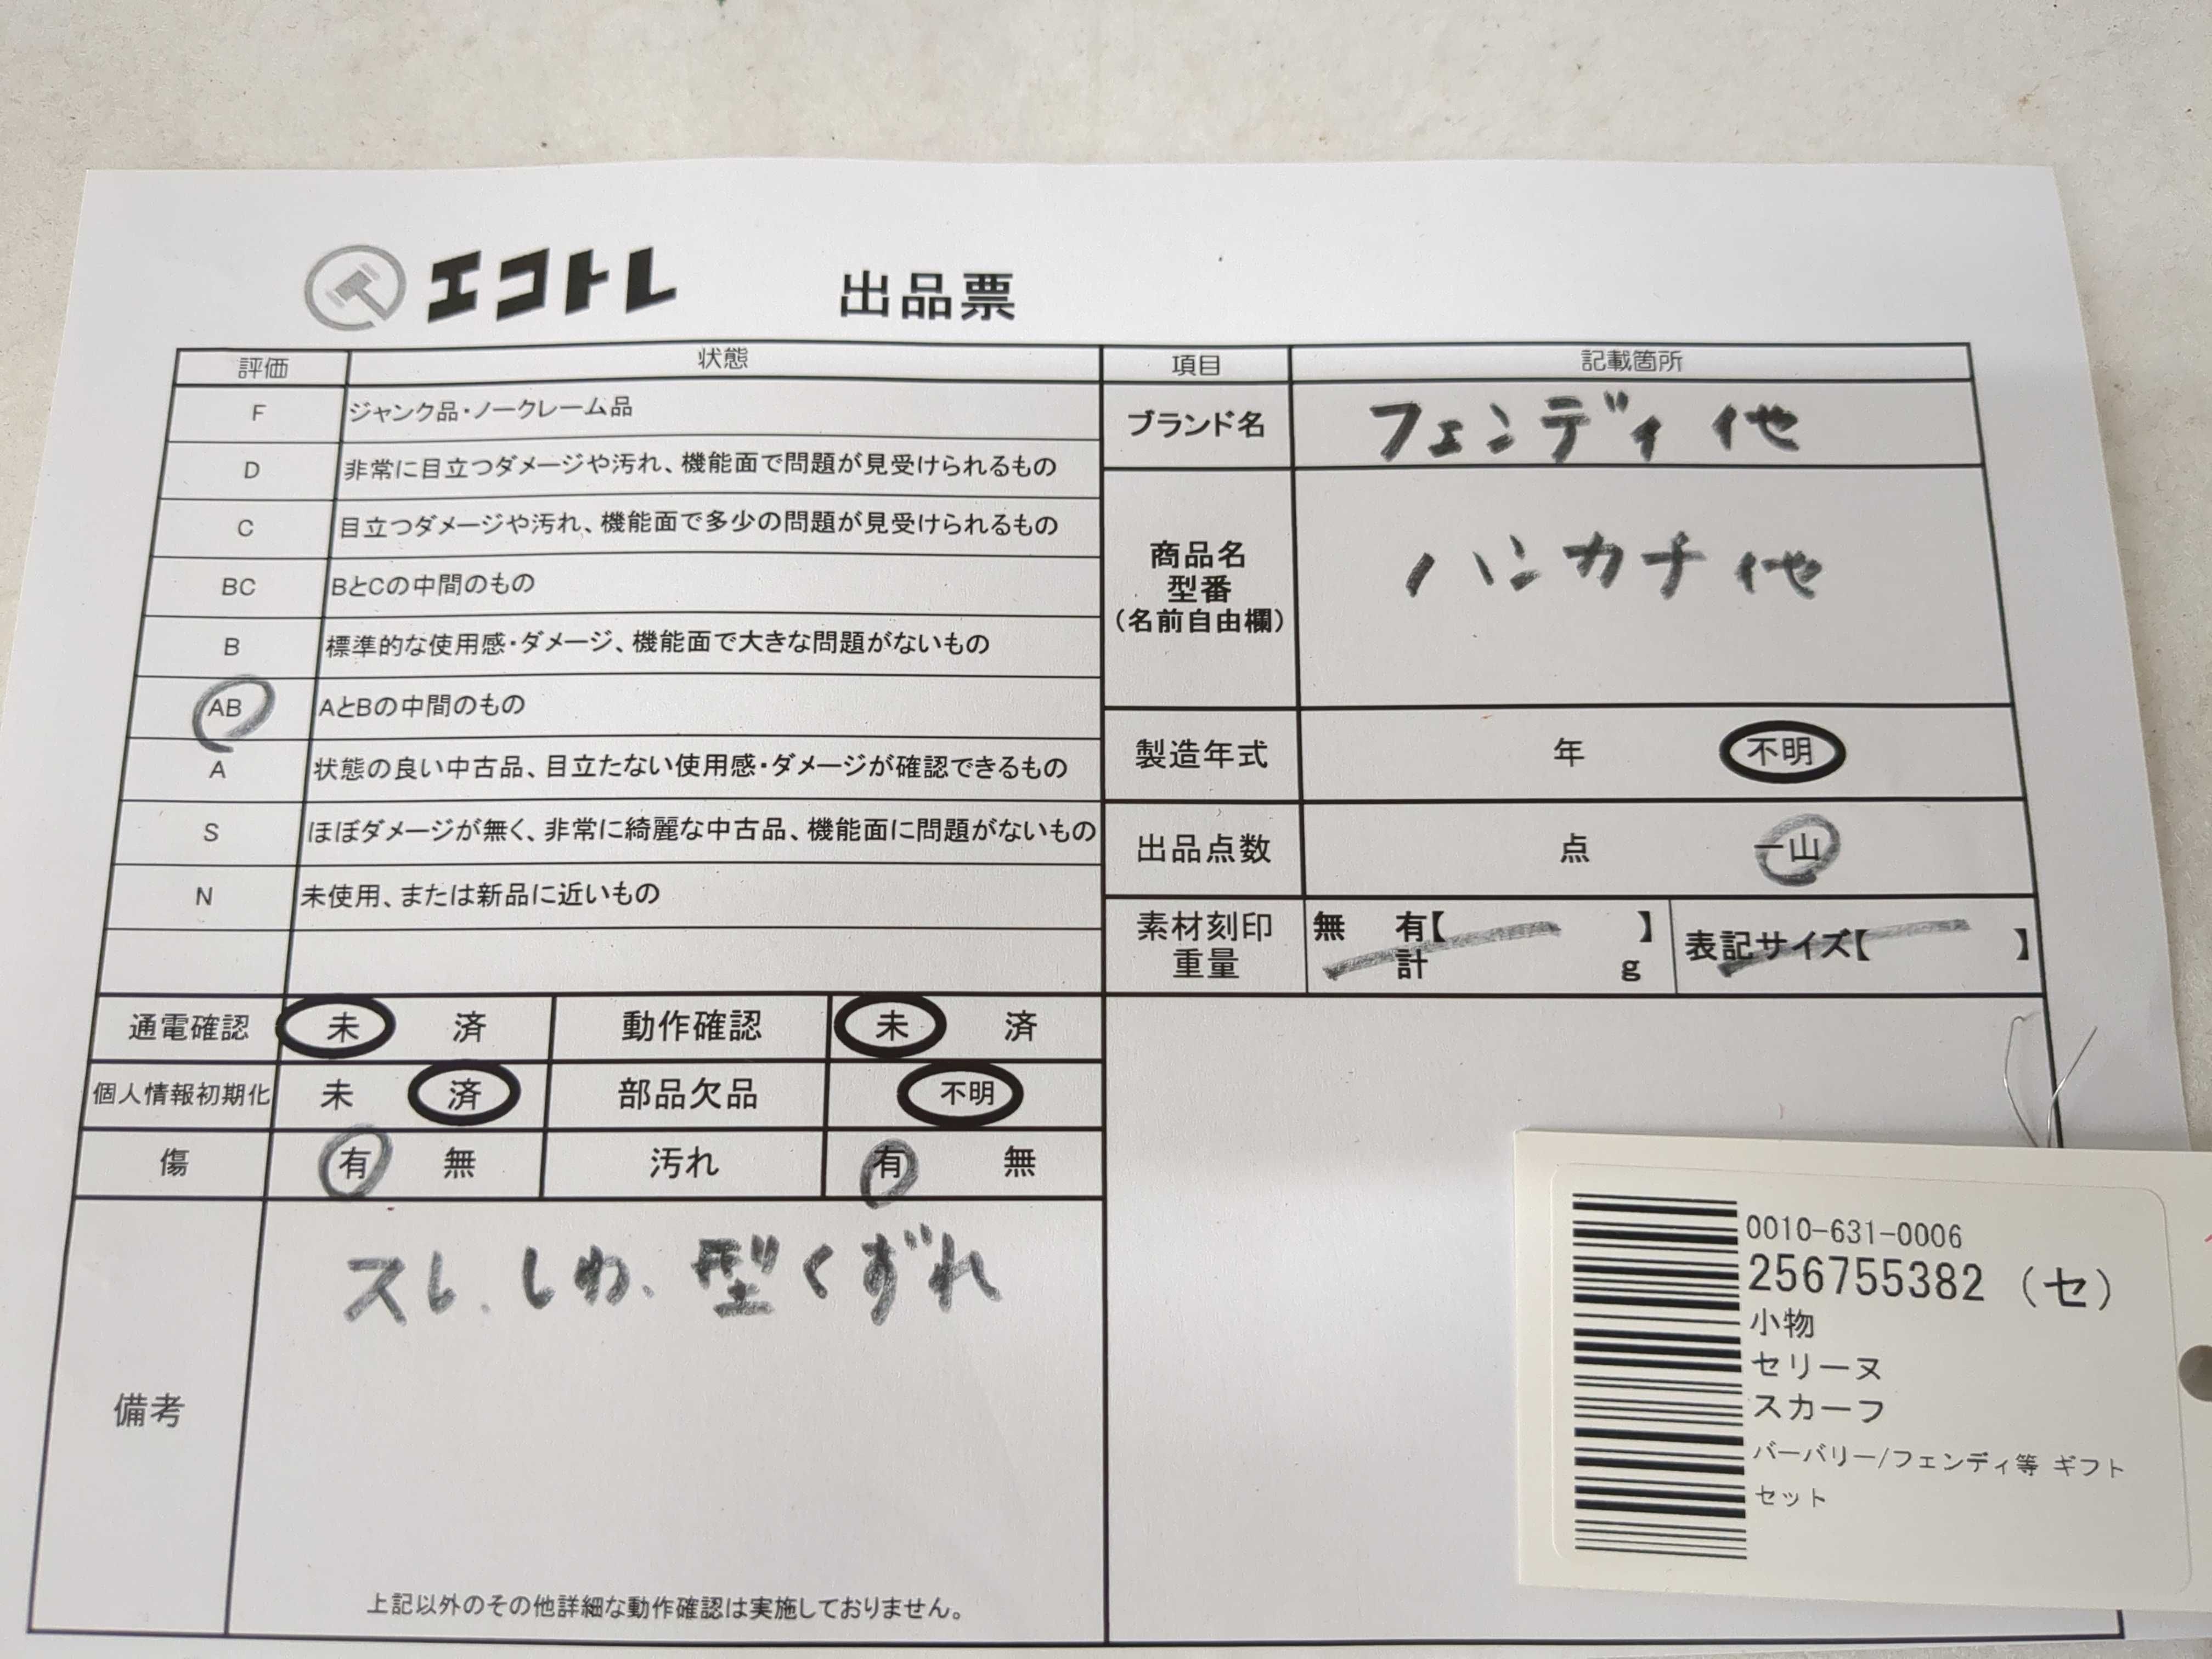 エコトレ 出品票
評価 状態
F ジャンク品・ノークレーム品
D 非常に目立つダメージや汚れ、機能面で問題が見受けられるもの
C 目立つダメージや汚れ、機能面で多少の問題が見受けられるもの
BC BとCの中間のもの
B 標準的な使用感・ダメージ、機能面で大きな問題がないもの
AB AとBの中間のもの
A 状態の良い中古品、目立たない使用感・ダメージが確認できるもの
S ほぼダメージが無く、非常に綺麗な中古品、機能面に問題がないもの
N 未使用、または新品に近いもの
項目 記載箇所
ブランド名 フェンディ他
商品名
型番
(名前自由欄)
ハンカチ他
製造年式 年 不明
出品点数 点 一山
素材刻印 無 有【 】
重量 計 g
表記サイズ【 】
通電確認 未 済 動作確認 未 済
個人情報初期化 未 済 部品欠品 不明
傷 有 無 汚れ 有 無
備考
スレ、しわ、型くずれ
上記以外のその他詳細な動作確認は実施しておりません。
0010-631-0006
256755382 (セ)
小物
セリーヌ
スカーフ
バーバリー/フェンディ等 ギフト
セット